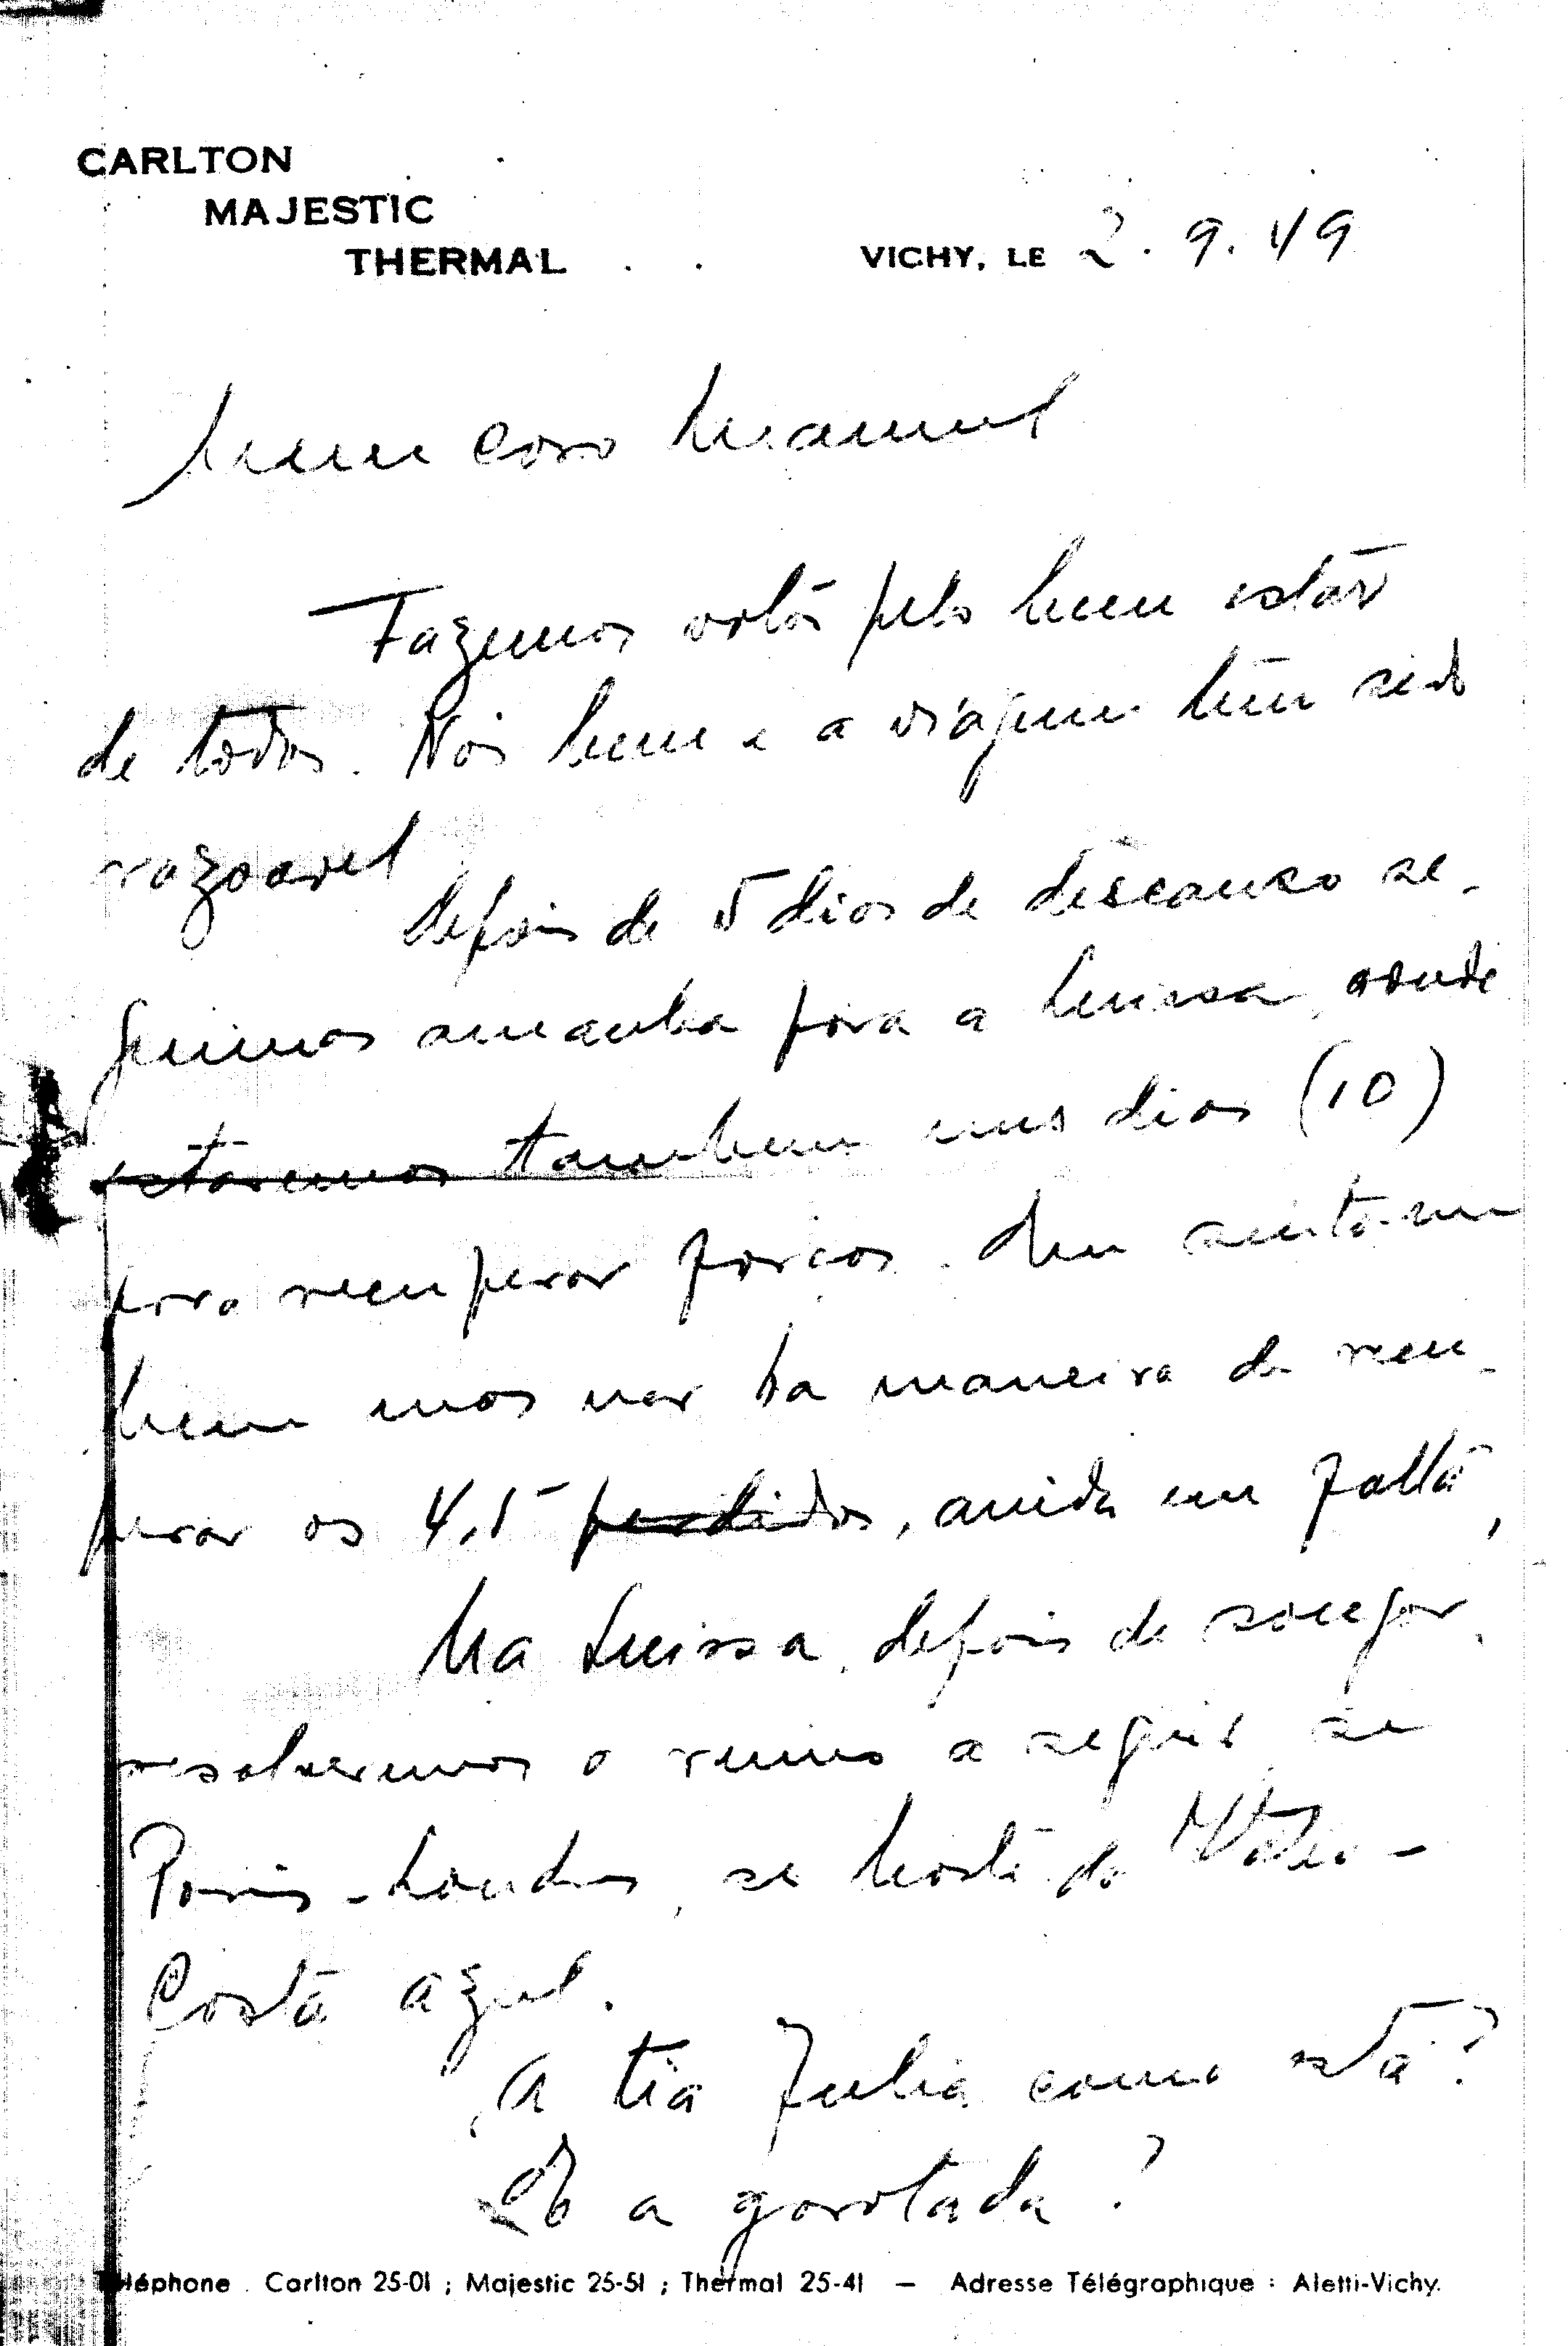 CARLTON
MAJESTIC
THERMAL
VICHY, LE 2.9.49
Meu caro Manuel
Fazemos votos pelo bem estar
de todos. Nós bem e a viagem tem sido
razoavel
Depois de 5 dias de descanso se-
guimos amanha para a Suissa, onde
estaremos tambem uns dias (10)
para recuperar forças. Eu sinto-me
bem mas não ha maneira de recu-
perar os 4,5 perdidos, ainda em falta,
Na Suissa, depois de socegar,
resolveremos o rumo a seguir se
Paris-Londres, se Costa
Costa azul.
A tia Julia como está?
E a garotada?
Téléphone : Carlton 25-01 ; Majestic 25-51 ; Thermal 25-41 — Adresse Télégraphique : Aletti-Vichy.